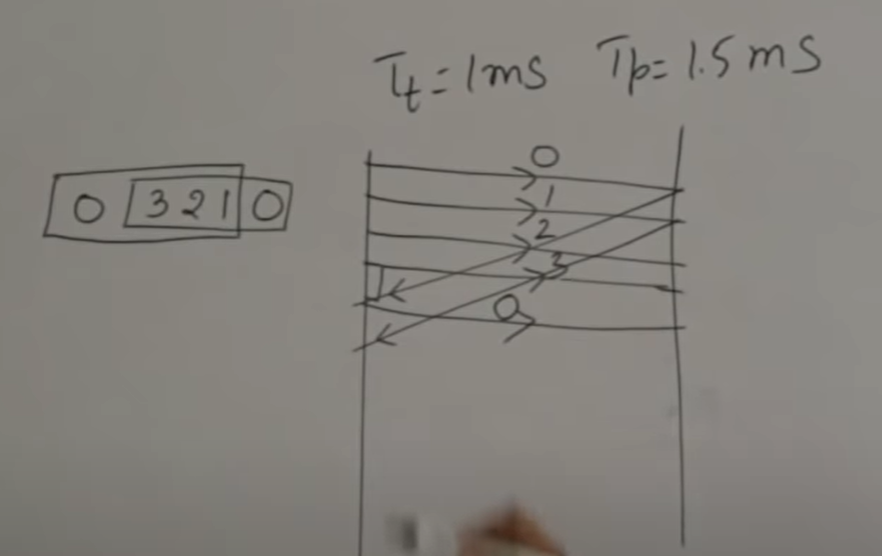 Tt = 1ms Tp = 1.5ms
0 3 2 1 0
0
1
2
3
0